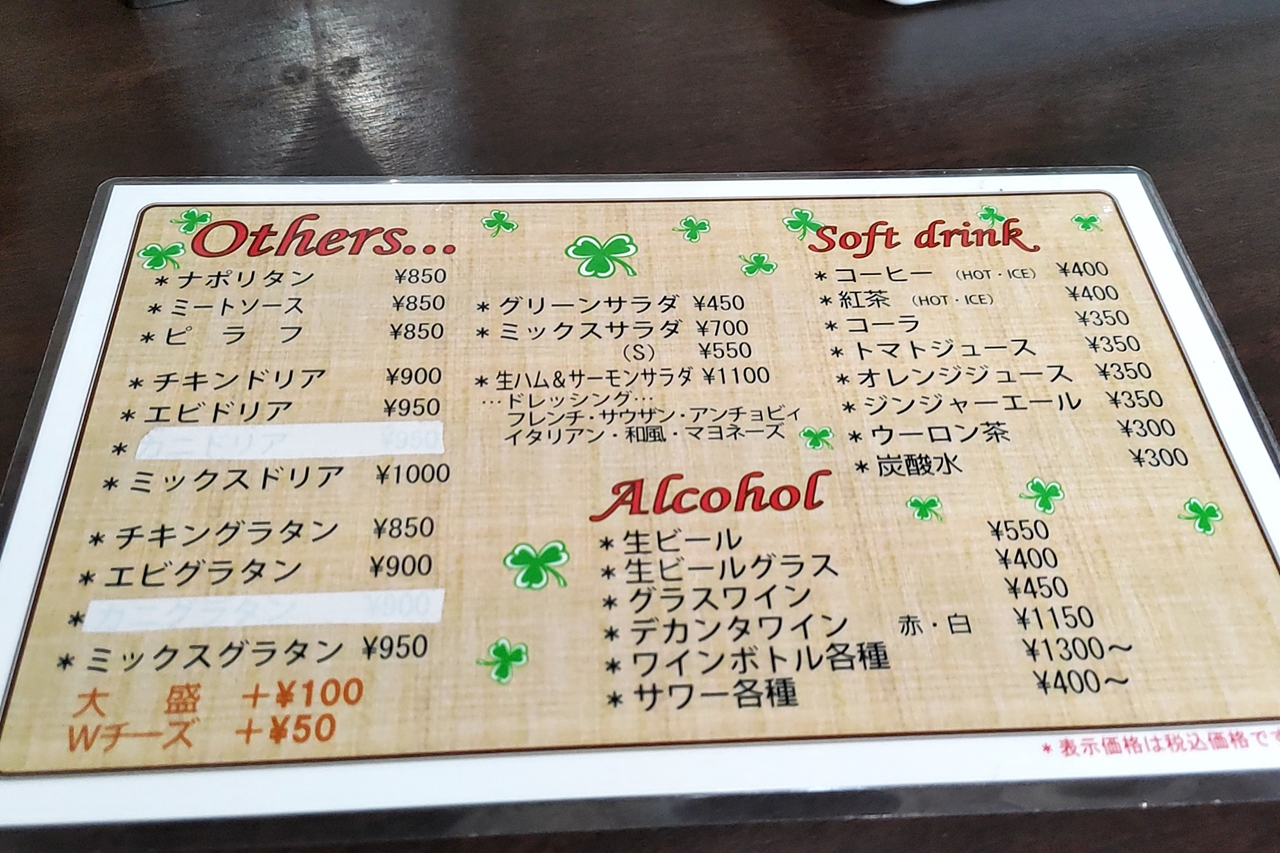 Others...
*ナポリタン ¥850
*ミートソース ¥850
*ピラフ ¥850
*チキンドリア ¥900
*エビドリア ¥950
*カニドリア ¥950
*ミックスドリア ¥1000
*チキングラタン ¥850
*エビグラタン ¥900
*カニグラタン ¥900
*ミックスグラタン ¥950
大盛 +¥100
Wチーズ +¥50
*グリーンサラダ ¥450
*ミックスサラダ ¥700
(S) ¥550
*生ハム&サーモンサラダ ¥1100
…ドレッシング…
フレンチ・サウザン・アンチョビィ
イタリアン・和風・マヨネーズ
Soft drink
*コーヒー (HOT・ICE) ¥400
*紅茶 (HOT・ICE) ¥400
*コーラ ¥350
*トマトジュース ¥350
*オレンジジュース ¥350
*ジンジャーエール ¥350
*ウーロン茶 ¥300
*炭酸水 ¥300
Alcohol
*生ビール ¥550
*生ビールグラス ¥400
*グラスワイン ¥450
*デカンタワイン 赤・白 ¥1150
*ワインボトル各種 ¥1300～
*サワー各種 ¥400～
*表示価格は税込価格です